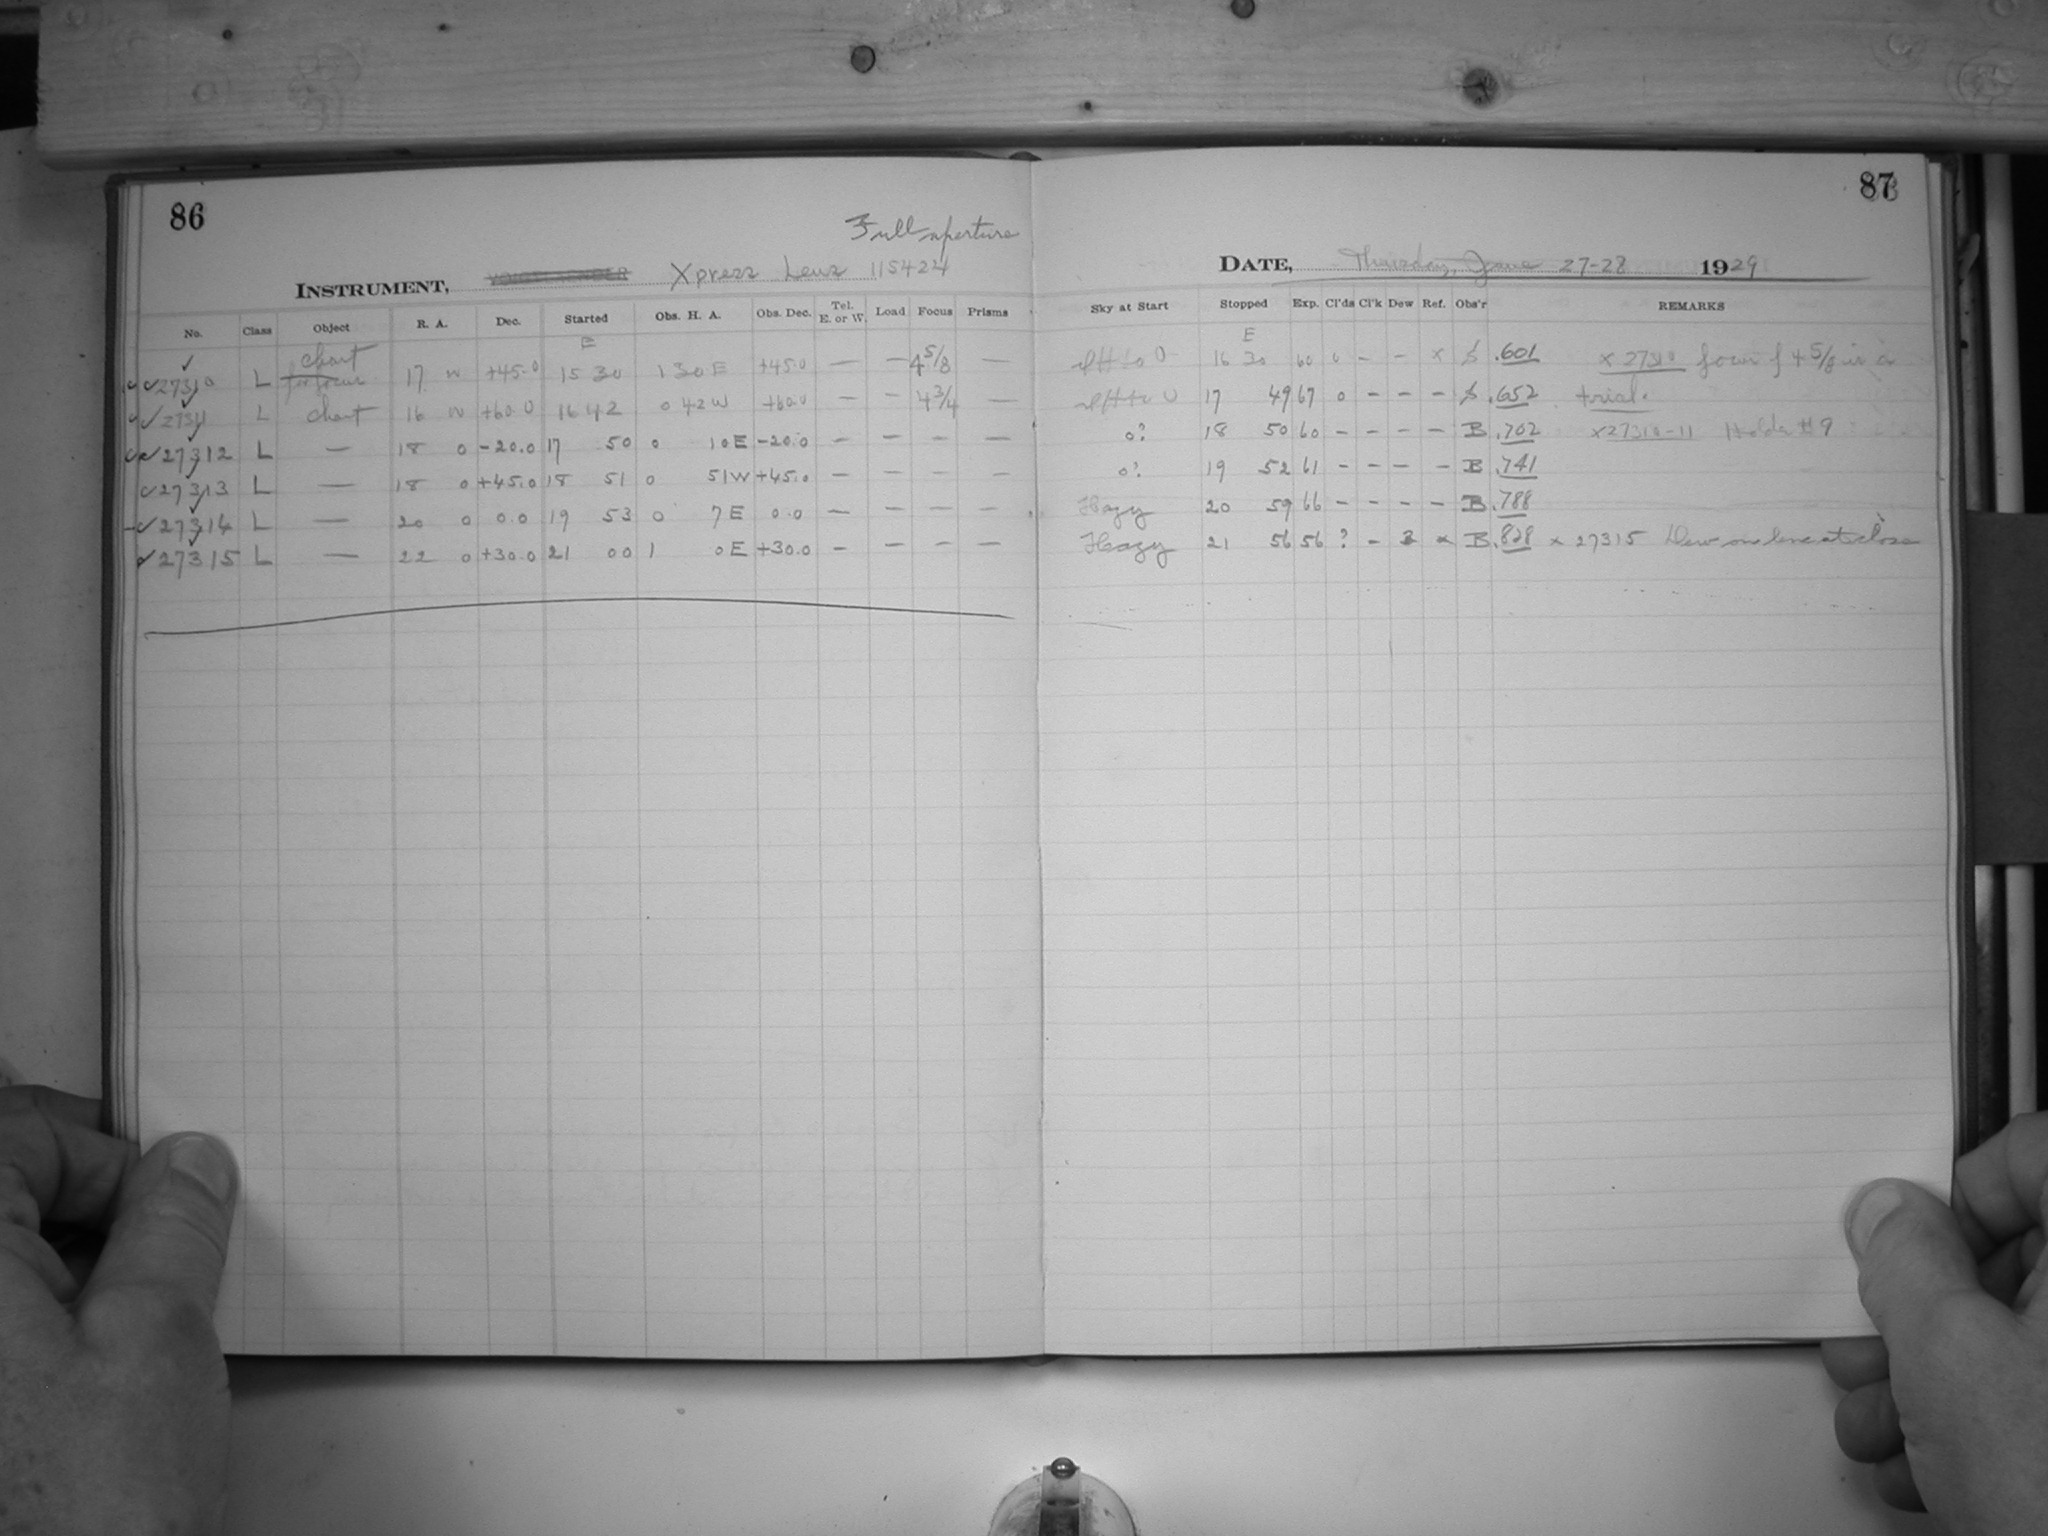 86
Full aperture
INSTRUMENT, VOIGTLANDER Xpress Lens 115424
No. Class Object R. A. Dec. Started Obs. H. A. Obs. Dec. Tel. E. or W. Load Focus Prisms
E
✓✓27310 L chart for focus 17 +45.0 15 30 1 30 E +45.0 — — 4 5/8 —
✓✓27311 L chart 16 +60.0 16 42 0 42 W +60.0 — — 4 3/4 —
✓27312 L — 18 0 -20.0 17 50 0 10 E -20.0 — — — —
✓27313 L — 18 0 +45.0 18 51 0 51 W +45.0 — — — —
✓27314 L — 20 0 0.0 19 53 0 7 E 0.0 — — — —
✓27315 L — 22 0 +30.0 21 00 1 0 E +30.0 — — — —
87
DATE, Thursday, June 27-28 1929
Sky at Start Stopped Exp. Cl'ds Cl'k Dew Ref. Obs'r REMARKS
E
to 0 16 30 60 0 - - x .601 x 27310 focus of 4 5/8 is a
to 0 17 49 67 0 - - - .652 trial.
0? 18 50 60 - - - - B .702 x27310-11 Holder #9
0? 19 52 61 - - - - B .741
Hazy 20 59 66 - - - - B .788
Hazy 21 56 56 ? - 2 x B .828 x 27315 Dew on lens at close